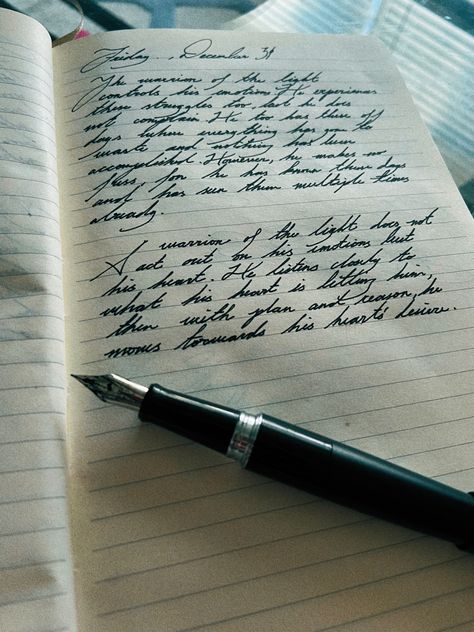 Friday.., December 31
The warrior of the light
controls his emotions. He experiences
these struggles too, but he does
not complain. He too has these off
days where everything has gone to
waste and nothing has been
accomplished. However, he makes no
fuss, for he has known these days
and has seen them multiple times
already.
A warrior of the light does not
act out on his emotions but
his heart. He listens closely to
what his heart is telling him,
then with plan and reason, he
moves towards his heart's desire.